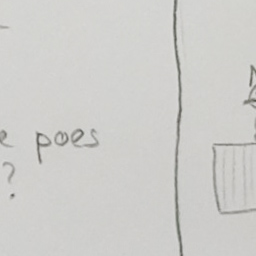 e poes
?